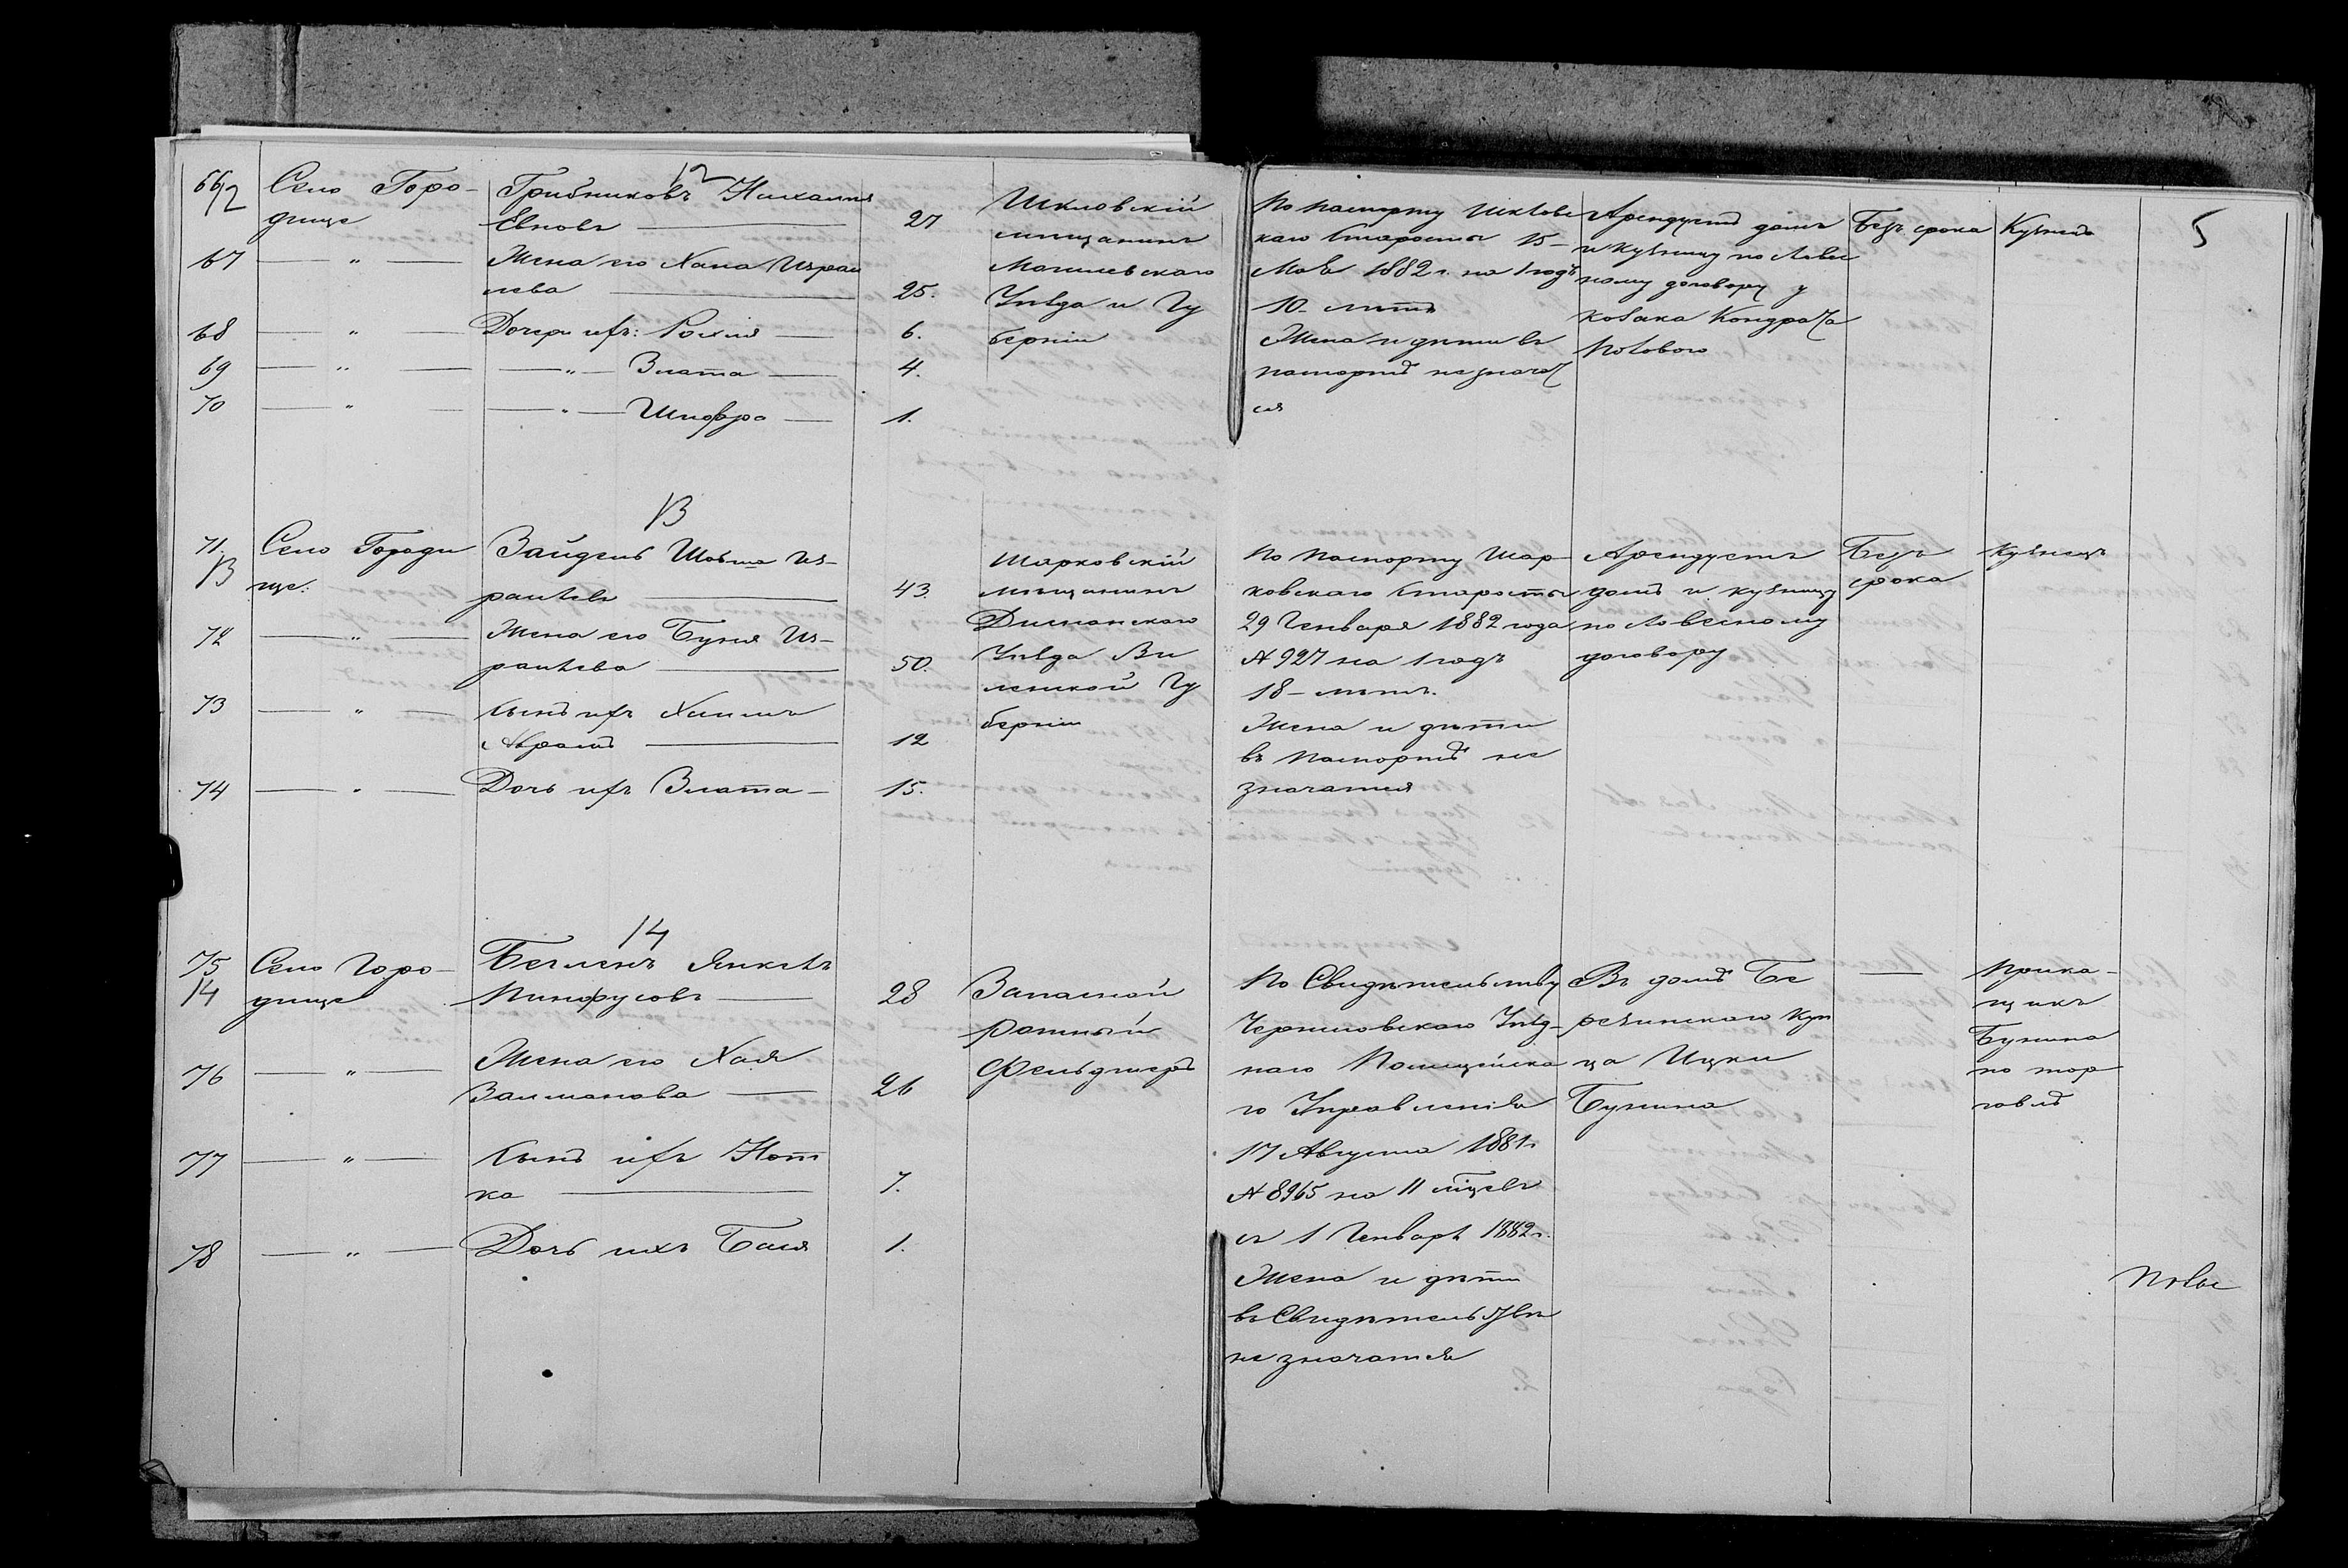 5
12
66/12
Село Горо-
дище
Грибниковъ Нихамия
Евновъ
27
Шкловскій
мѣщанинъ
Могилевскаго
Уѣзда и Гу
берніи
По паспорту Шклов
каго Старосты 15
Мая 1882 г. на 1 годъ
10 лѣтъ
Жена и дѣти въ
паспортѣ не значат
ся
Арендуетъ домъ
и кузницу по словес
ному договору у
козака Кондрата
Лозового
Безъ срока
Кузнецъ
67
— " —
Жена его Хана Израи
лева
25.
68
— " —
Дочери ихъ: Рохля
6.
69
— " —
— " — Злата
4.
70
— " —
— " — Шифра
1.
13
71.
13
Село Городи
ще.
Зайдель Шовма Из-
раилевъ
43.
Шарковскій
мѣщанинъ
Дисненскаго
Уѣзда Ви
ленской Гу
берніи
По паспорту Шар-
ковскаго Старосты
29 Генваря 1882 года
№ 927 на 1 годъ
18 лѣтъ.
Жена и дѣти
въ паспортѣ не
значатся
Арендуетъ
домъ и кузницу
по словесному
договору
Безъ
срока
Кузнецъ
72
— " —
Жена его Буня Из-
раилева
50.
73
— " —
Сынъ ихъ Хаимъ
Абрамъ
12
74
— " —
Дочь ихъ Злата
15.
14
75
14
Село Горо-
дище
Бегленъ Янкель
Пинхусовъ
28
Запасной
ратный
Фельдшеръ
По Свидѣтельству
Черниговскаго Уѣзд-
наго Полицейска
го Управленія
17 Августа 1881 г.
№ 8965 на 11 мѣсяцевъ
съ 1 Генваря 1882 г.
Жена и дѣти
въ Свидѣтельствѣ
не значатся
Въ домѣ Бе
резинского куп
ца Ицки
Бунина
—
Прика-
щикъ
Бунина
по тор
говлѣ
76
— " —
Жена его Хая
Залманова
26
77
— " —
Сынъ ихъ Нот
ка
7.
78
— " —
Дочь ихъ Бася
1.